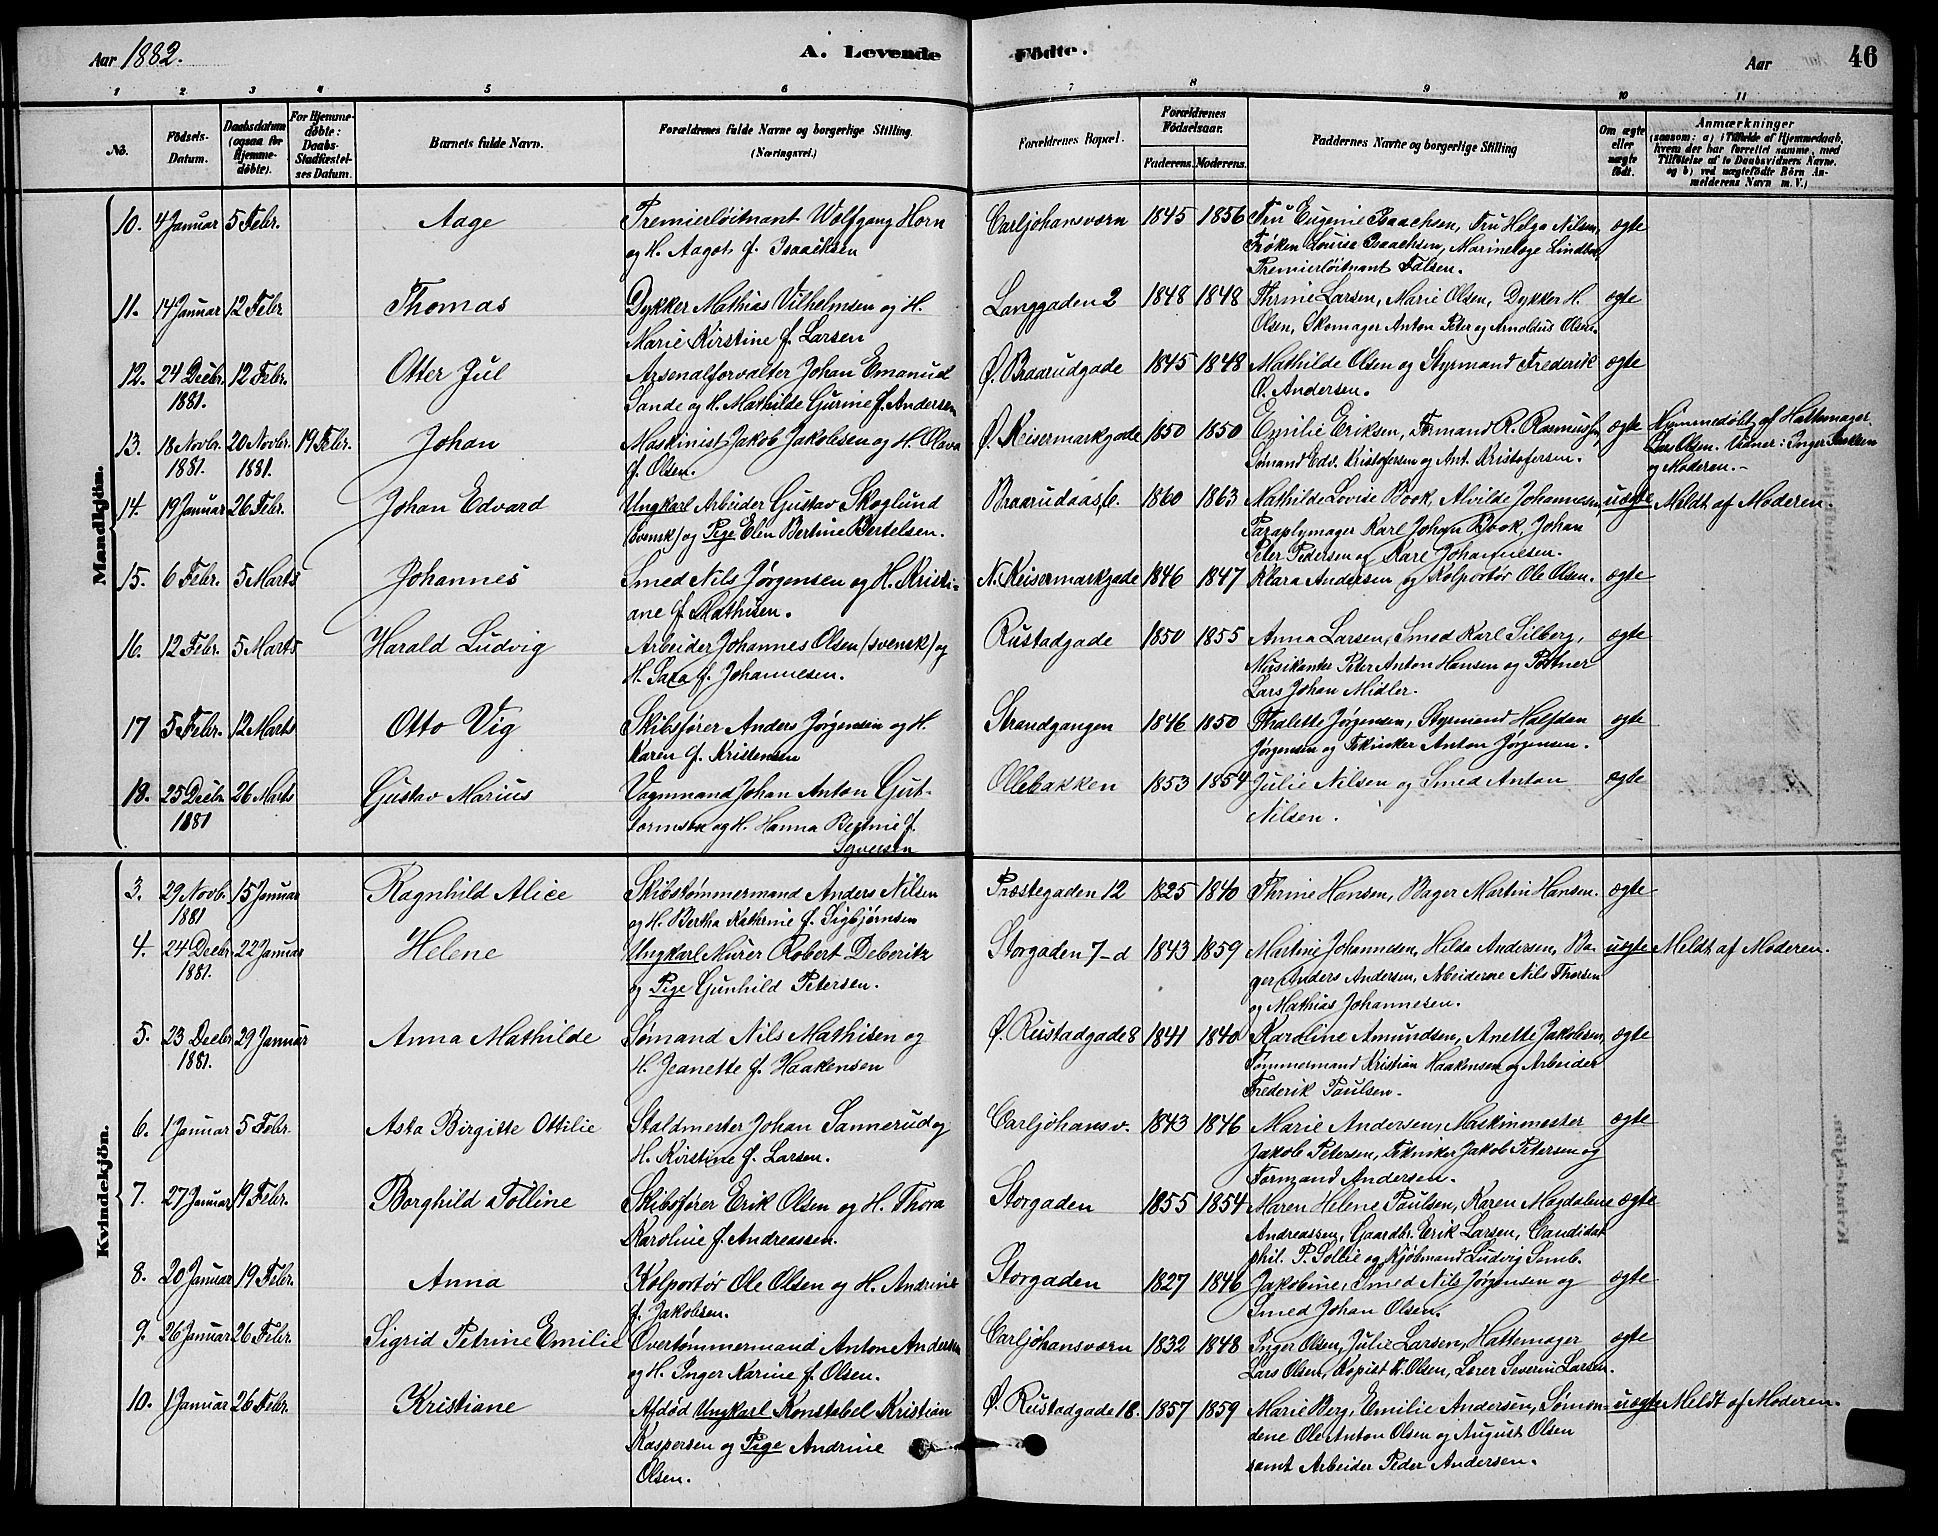 Aar 1882.
A. Levende Födte.
Aar
46
1 2 3 4 5 6 7 8 9 10 11
No.
Födsels-Datum.
Daabsdatum (ogsaa for Hjemme-døbte).
For Hjemme-døbte: Daabs-Stadfæstel-ses Datum.
Barnets fulde Navn.
Forældrenes fulde Navne og borgerlige Stilling. (Næringsvei.)
Forældrenes Bopæl.
Forældrenes Födselsaar.
Faderens. Moderens.
Faddernes Navne og borgerlige Stilling
Om ægte eller uægte født.
Anmærkninger
(saasom: a) i Tilfælde af Hjemmedaab, hvem der har forrettet samme, med Tilföielse af to Daabsvidners Navne. og b) ved uægtefödte Börn An-melderens Navn m. V.)
Mandkjön.
10. 4 Januar 5 Febr. Aage Premierløitnant Wolfgang Horn Carljohansværn 1845 1856 Fru Eugenie Isaachsen, Fru Helga Nilsen, ægte
og H. Aagot f. Isaachsen Frøken Louise Isaachsen, Marinelæge
Premierløitnant Falsen.
11. 14 Januar 12 Febr Thomas Dykker Mathias Vilhelmsen og H. Langgaden 2 1848 1848 Thrine Larsen, Marie Olsen, Dykker H. ægte
Marie Kirstine f. Larsen Olsen, Skomager Anton Peter og Arnoldus Olsen.
12. 24 Decbr. 12 Febr. Otter Jul Arsenalforvalter Johan Emanuel Ø. Braarudgade 1845 1848 Mathilde Olsen og Styrmand Frederik ægte
1881. Sande og H. Mathilde Gurine f. Andersen O. Andersen.
13. 18 Novbr. 20 Novbr. 19 Febr. Johan Maskinist Jakob Jakobsen og H. Olava Ø. Keisermarkgade 1850 1850 Emilie Eriksen, Formand R. Rasmussen, ægte Hjemmedøbt af Hattemager
1881. 1881. f. Olsen. Sømand Edv. Kristofersen og Ant. Kristofersen. Lars Olsen. Vidner: Inger
og Moderen.
14. 19 Januar 26 Febr. Johan Edvard Ungkarl Arbeider Gustav Skoglund Braarudaas 6. 1860 1863 Mathilde Lovise Book, Alvilde Johannesen, uægte Meldt af Moderen.
(svensk) og Pige Elen Bertine Bertelsen. Paraplymager Karl Johan Book, Johan
Peter Pedersen og Karl Johannesen.
15. 6 Febr. 5 Marts Johannes Smed Nils Jørgensen og H. Kristi- N. Keisermarkgade 1846 1847 Klara Andersen og Kolportør Ole Olsen. ægte
ane f. Mathisen.
16. 12 Febr. 5 Marts Harald Ludvig Arbeider Johannes Olsen (svensk) og Rustadgade 1850 1855 Anna Larsen, Smed Karl Silberg, ægte
H. Sara f. Johannesen. Musikante Peter Anton Hansen og Portner
Lars Johan Midler.
17 5 Febr. 12 Marts Otto Vig Skibsfører Anders Jørgensen og H. Strandgangen 1846 1850 Thalette Jørgensen, Styrmand Halfdan ægte
Karen f. Kristensen Jørgensen og Tekniker Anton Jørgensen.
18. 25 Decbr. 26 Marts Gustav Marius Vognmand Johan Anton Gut- Ollebakken 1853 1854 Julie Nilsen og Smed Anton ægte
1881 tormsen og H. Hanna Bertine f. Nilsen.
Syversen
Kvindekjön.
3. 29 Novb. 15 Januar Ragnhild Alice Skibstømmermand Anders Nilsen Præstegaden 12 1825 1840 Thrine Hansen, Bager Martin Hansen. ægte
1881 og H. Bertha Kathrine f. Sigbjørnsen
4. 24 Decbr 22 Januar Helene Ungkarl Murer Robert Deberitz Storgaden 7-d 1843 1859 Martine Johannesen, Hilda Andersen, Ba- uægte Meldt af Moderen.
1881. og Pige Gunhild Petersen. ger Anders Andersen, Arbeiderne Nils Thorsen
og Mathias Johannesen.
5. 23 Decbr 29 Januar Anna Mathilde Sømand Nils Mathisen og Ø. Rustadgade 8 1841 1840 Karoline Amundsen, Anette Jakobsen, ægte
1881. H. Jeanette f. Haakensen Tømmermand Kristian Haakensen og Arbeider
Frederik Paulsen.
6. 1 Januar 5 Febr. Asta Birgitte Ottilie Staldmester Johan Sannerud og Carljohansv. 1843 1846 Marie Andersen, Maskinmester ægte
H. Kirstine f. Larsen. Jakob Petersen, Tekniker Jakob Petersen og
Formand Andersen.
7. 27 Januar 19 Febr. Borghild Tolline Skibsfører Erik Olsen og H. Thora Storgaden 1855 1854 Maren Helene Paulsen, Karen Magdalene ægte
Karoline f. Andreassen. Andreassen, Gaardbr. Erik Larsen, Candidat
phil. P. Sollie og Kjøbmand Ludvig Semb.
8. 20 Januar 19 Febr. Anna Kolportør Ole Olsen og H. Andrine Storgaden 1827 1846 Jakobine, Smed Nils Jørgensen og ægte
f. Jakobsen. Smed Johan Olsen.
9. 26 Januar 26 Febr. Sigrid Petrine Emilie Overtømmermand Anton Andersen Carljohansværn 1832 1848 Inger Olsen, Julie Larsen, Hattemager ægte
og H. Inger Karine f. Olsen. Lars Olsen, Kopist K. Olsen, Lærer Severin Larsen.
10. 1 Januar 26 Febr. Kristiane Afdød Ungkarl Konstabel Kristian Ø. Rustadgade 18. 1857 1859 Marie Berg, Emilie Andersen, Sømæn- uægte Meldt af Moderen.
Kaspersen og Pige Andrine dene Ole Anton Olsen og August Olsen
Olsen. samt Arbeider Peder Andersen.